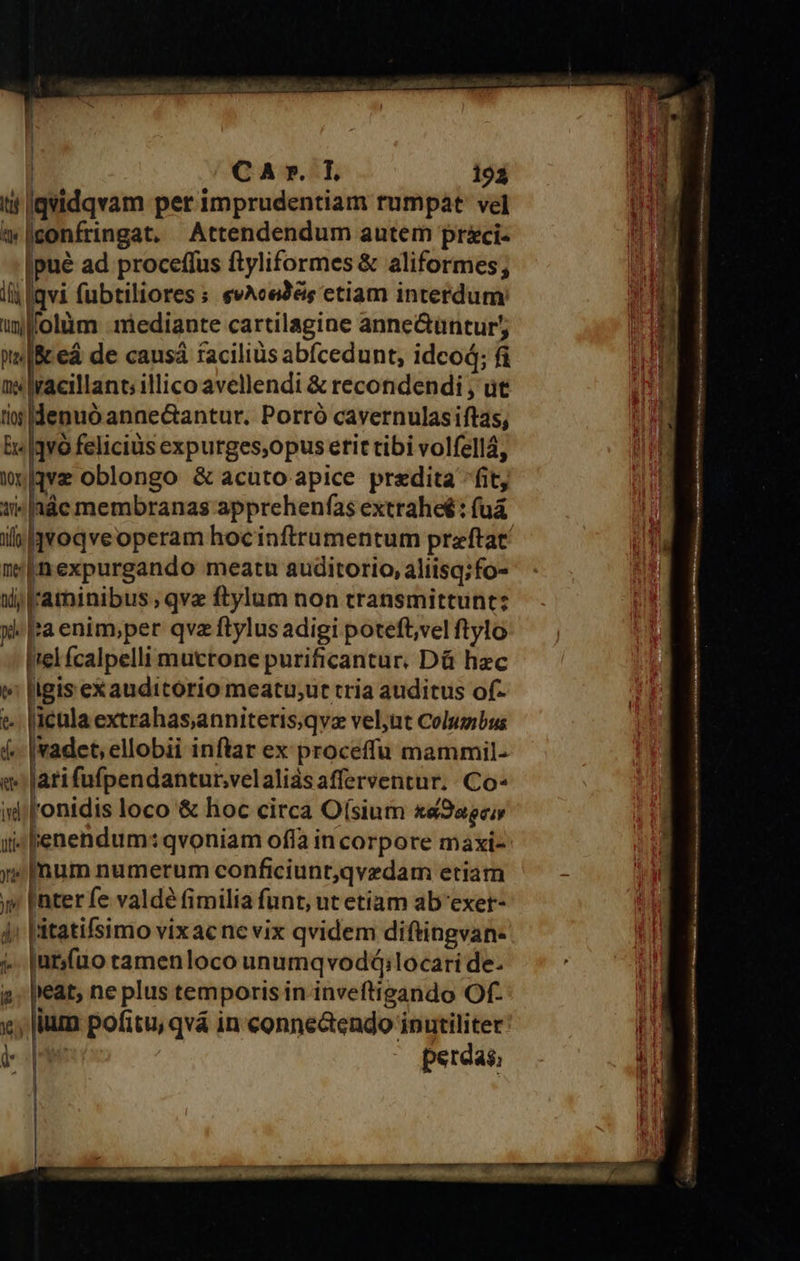 CAP. I. 193
qvidqvam per imprudentiam rumpat vel
confringat. Attendendum autem præci-
puè ad proceſſus ſtyliformes & aliformes,
qvi ſubtiliores; etiam interdum
ſolùm mediante cartilagine annectuntur,
& eâ de causâ faciliùs abſcedunt, ideoq́; ſi
vacillant, illico avellendi & recondendi, ut
denuò annectantur. Porrò cavernulas iſtas,
qvò feliciùs expurges, opus erit tibi volſellâ,
qvæ oblongo & acuto apice prædita ſit,
hâc membranas apprehenſas extrahes: ſuâ
qvoqve operam hoc inſtrumentum præſtat
in expurgando meatu auditorio, aliisq; fo-
raminibus, qvæ ſtylum non transmittunt:
ea enim, per qvæ ſtylus adigi poteſt, vel ſtylo
vel ſcalpelli mucrone purificantur. Dū hæc
ligis ex auditorio meatu, ut tria auditus oſ-
ſicula extrahas, anniteris, qvæ vel, ut Columbus
ſvadet, ellobii inſtar ex proceſſu mammil-
lari ſuſpendantur, vel aliàs aſſerventur. Co-
ronidis loco & hoc circa Oſsium
tenendum: qvoniam oſſa in corpore maxi-
mum numerum conficiunt, qvædam etiam
inter ſe valdè ſimilia ſunt, ut etiam ab exer-
citatiſsimo vix ac ne vix qvidem diſtingvan-
tur, ſuo tamen loco unumqvodq́; locari de-
beat, ne plus temporis in inveſtigando Oſ-
ſium poſitu, qvâ in connectendo inutiliter
perdas,